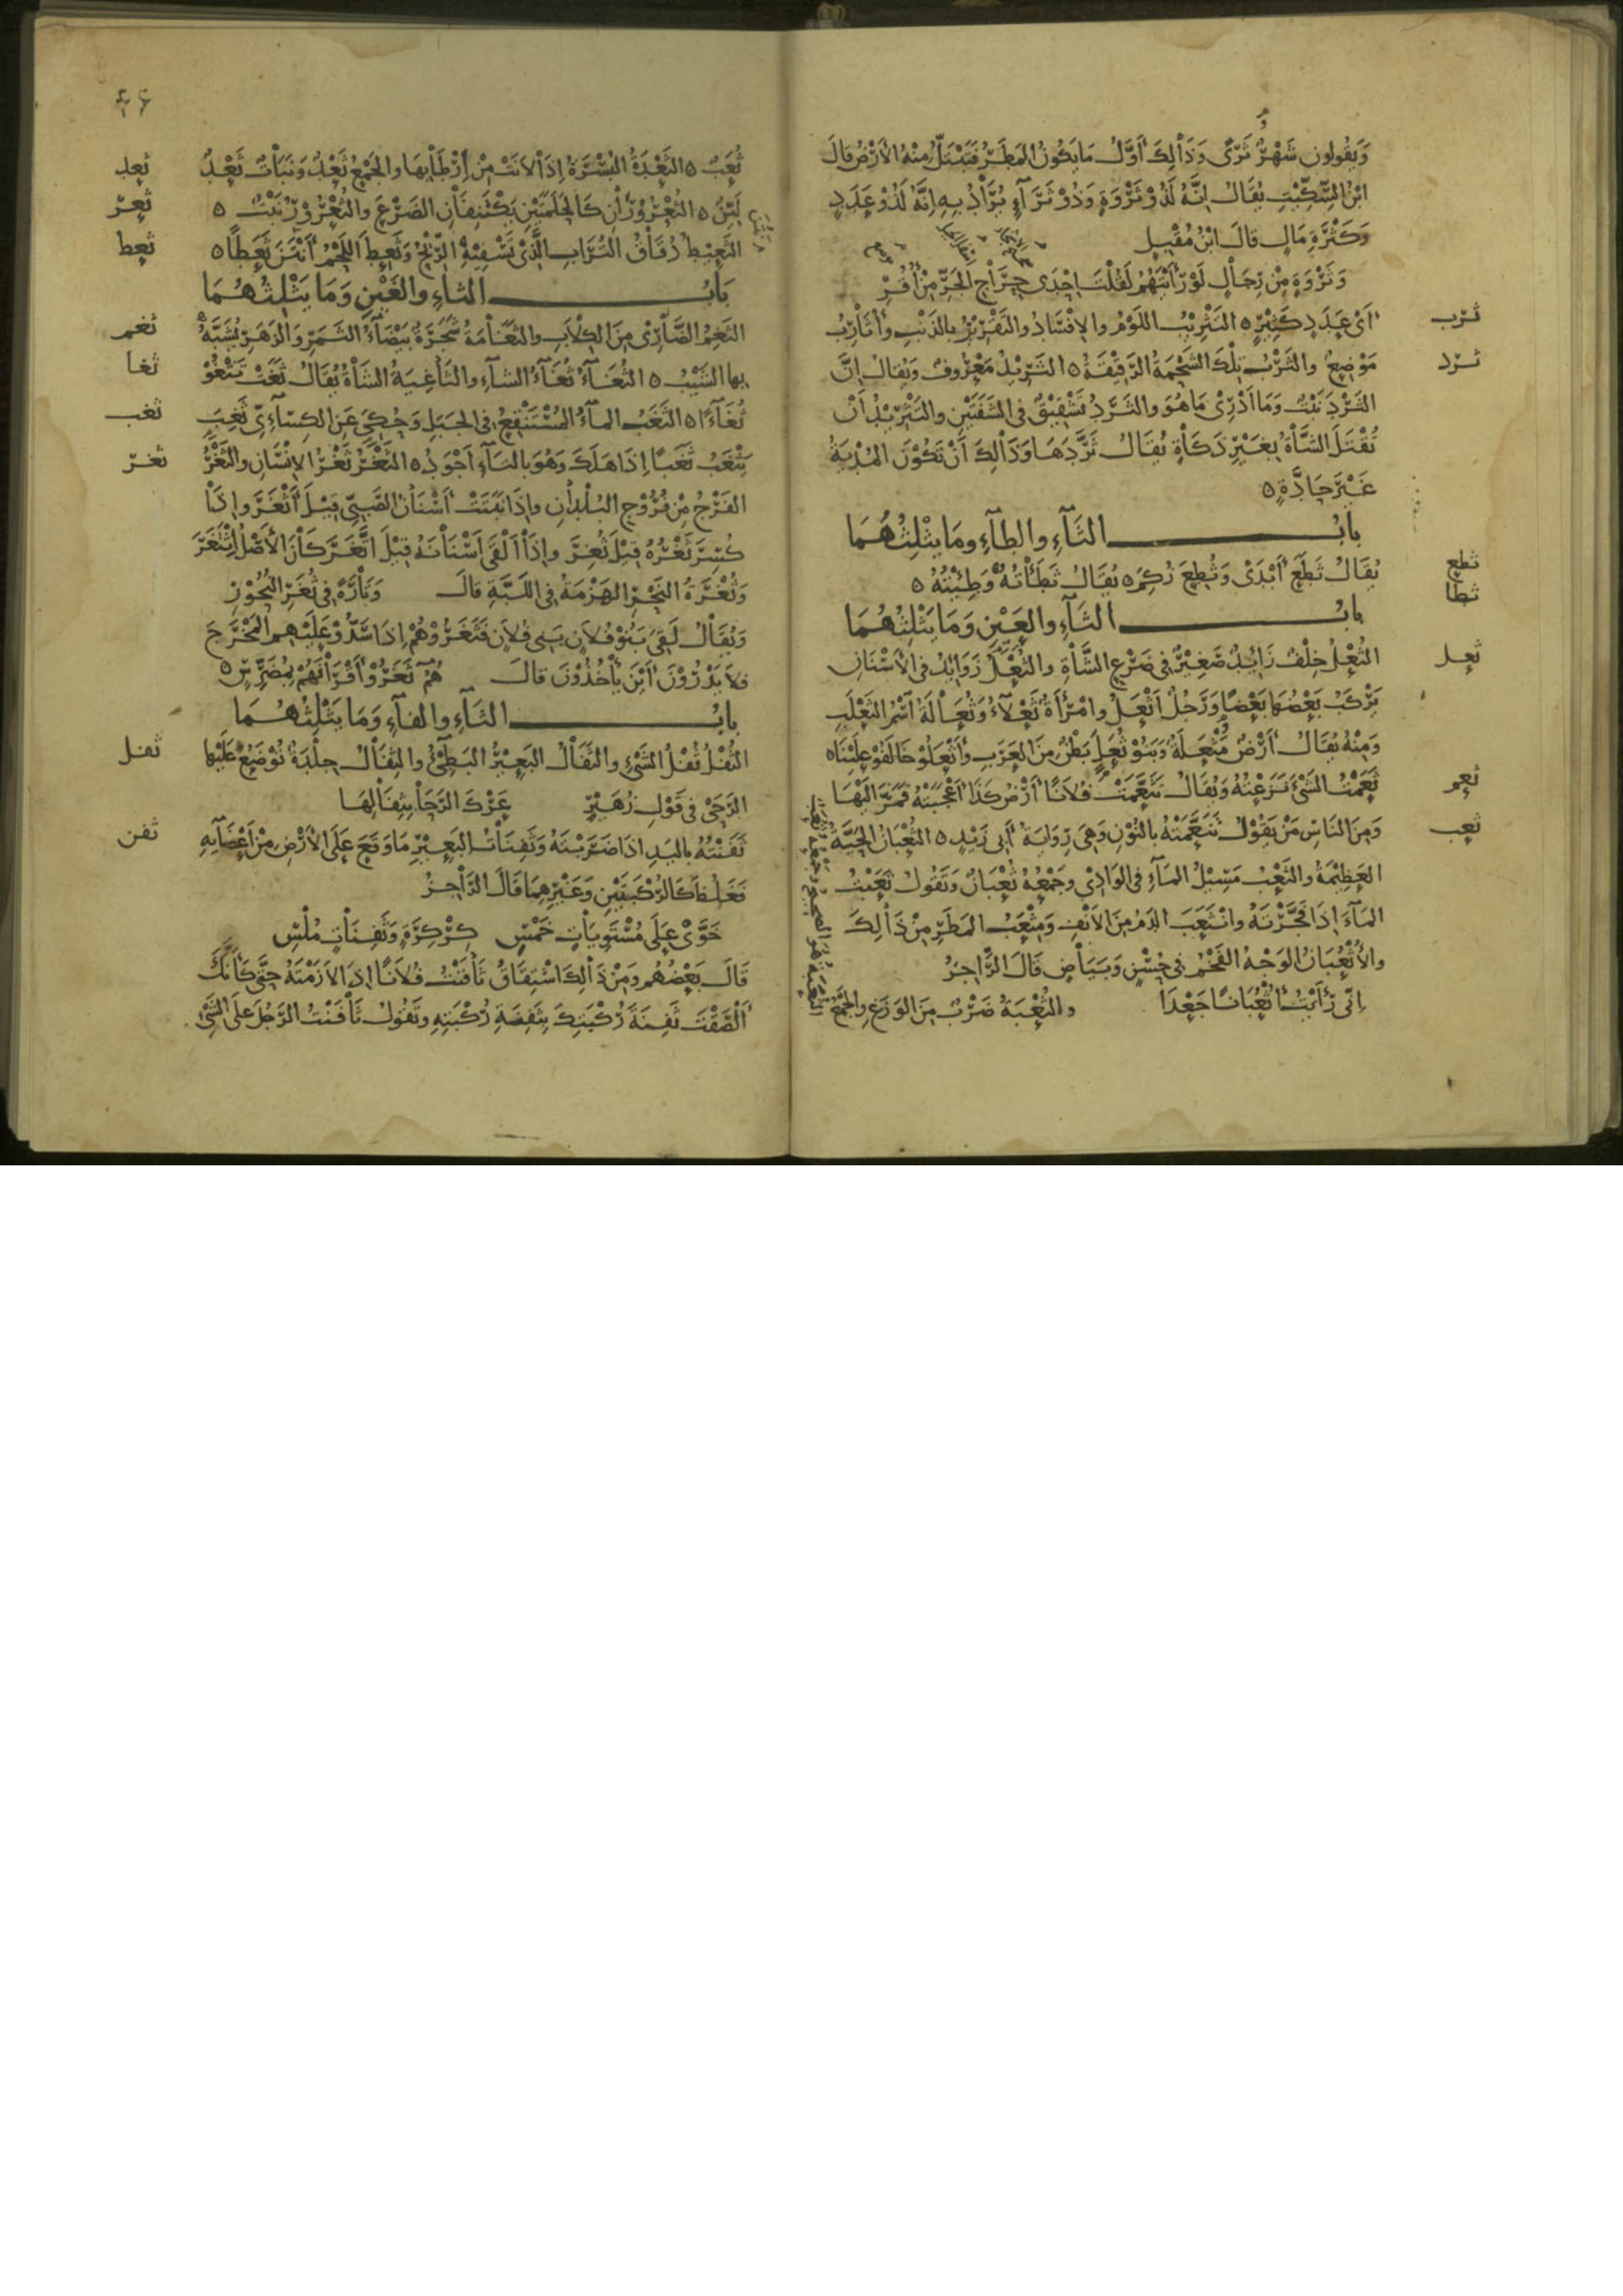 وَيَقُولون شَهْرٌ ثَرًى وَذٰلِكَ أَوَّلُ مَا يَكُونُ المَطَرُ فَتَبْتَلُّ مِنْهُ الأَرْضُ قالَ
ابْنُ السِّكِّيْتِ يُقَالُ إنَّهُ لَذُو ثَرْوَةٍ وَذُوْ ثَرَآءٍ يُرَادُ بِهِ اِنَّهُ لَذُوْ عَدَدٍ
وَكَثْرَةِ مَالٍ قالَ ابْنُ مُقْبِلٍ
وَثَرْوَةٍ مِنْ رِجَالٍ لَوْ رَأَيْتَهُمُ لَقُلْتَ اِحْدَى حِرَاجِ الجَرِّ مِنْ أُقُرِ
ثرب
أىْ عَدَدٍ كَثِيْرٍ ٥ التَثْرِيْبُ اللَوْمُ والاِفْسَادُ والتَقْرِيْرُ بالذَنْبِ وأَثَارِبُ
ثرد
مَوْضِعٌ والثَرْبُ تِلْكَ الشَحْمَةُ الرَقِيْقَةُ ٥ الثَرِيْدُ مَعْرُوفٌ وَيُقَالُ اِنَّ
الثَرْدَ نَبْتٌ وَمَا أَدْرِىْ مَا هُوَ والثَرَدُ تَشْقِيْقٌ فى الشَفَتَيْنِ والتَثْرِيْدُ أَنْ
تُقْتَلَ الشَاةُ بِغَيْرِ ذَكَاةٍ يُقَالُ ثَرَّدَهَا وَذٰلِكَ أَنْ تَكُوْنَ المُدْيَةُ
غَيْرَ حَادَّةٍ ٥
بابُ الثَآءِ والطآءِ ومَا يَثْلِثُهُمَا
ثطع
يُقَالُ ثَطَعَ أَبْدَى وَثُطِعَ زُكِمَ ٥ يُقَالُ ثَطَأْتُهُ وَطِئْتُهُ ٥
ثطا
بابُ الثَآءِ والعَيْنِ وَمَا يَثْلِثُهُمَا
ثعل
الثُعْلُ خِلْفٌ زَايِدٌ صَغِيْرٌ فى ضَرْعِ الشَاةِ والثُعْلُ زَوَايِدُ فى الأَسْنَانِ
يَرْكَبُ بَعْضُهَا بَعْضًا وَرَجُلٌ أَثْعَلُ وامْرَأَةٌ ثَعْلآءُ وَثُعَالَةُ اسْمُ الثَعْلَبِ
وَمِنْهُ يُقَالُ أَرْضٌ مَثْعَلَةٌ وَبَنُوْ ثُعَلٍ بَطْنٌ مِنَ العَرَبِ وأَثْعَلُوْا خَالَفُوْا عَلَيْنَا ٥
ثعم
ثَعَمْتُ الشَىْءَ نَزَعْتُهُ وَيُقَالُ تَثَعَّمَتْ فُلَانًا أَرْضُ كَذَا أَعْجَبَتْهُ فَمَرَّ اِلَيْهَا
ثعب
وَمِنَ النَاسِ مَنْ يَقُوْلُ تَنَعَّمَتْهُ بالنُوْنِ وَهِىَ رِوَايَةُ أَبى زَيْدٍ ٥ الثُعْبَانُ الحَيَّةُ
العَظِيْمَةُ والثَعْبُ مَسِيْلُ المَآءِ فى الوَادِىْ وجَمْعُهُ ثُعْبَانٌ وَتَقُولُ ثَعَبْتُ
المَآءَ اِذَا فَجَّرْتَهُ وانْثَعَبَ الدَمُ مِنَ الأَنْفِ وَمَثْعَبُ المَطَرِ مِنْ ذٰلِكَ
والأُثْعُبَانُ الوَجْهُ الفَخْمُ فى حُسْنٍ وَبَيَاضٍ قَالَ الرَاجِزُ
اِنّى رَأَيْتُ أُثْعُبَانًا جَعْدَا والثُعْبَةُ ضَرْبٌ مِنَ الوَزَغِ والجَمْعُ
٤٦
ثعد
ثُعَبٌ ٥ الثَعْدَةُ البُسْرَةُ اِذَا لَانَتْ مِنْ اِرْطَابِهَا والجَمْعُ ثَعْدٌ وَنَبَاتٌ ثَعْدٌ
ثعر
لَيِّنٌ ٥ الثُعْرُوْرَانِ كَالحَلَمَتَيْنِ يَكْتَنِفَانِ الضَرْعَ والثُعْرُوْرُ نَبْتٌ ٥
ثعط
الثَعِيْطُ دُقَاقُ التُرَابِ الَّذِىْ تَسْفِيْهِ الرِّيْحُ وَثَعِطَ اللَحْمُ أَنْتَنَ ثَعَطًا ٥
بَابُ الثاءِ والغَيْنِ وَمَا يَثْلِثُهُمَا
ثغم
الثَغِمُ الضَّارِىْ مِنَ الكِلَابِ والثَغَامَةُ شَجَرَةٌ بَيْضَآءُ الثَمَرِ والزَهَرِ يُشَبَّهُ
ثغا
بِها الشَيْبُ ٥ الثُغَآءُ ثُغَآءُ الشآءِ والثَاغِيَةُ الشَاةُ يُقَالُ ثَغَتْ تَثْغُوْ
ثغب
ثُغَآءً ٥ الثَغَبُ المآءُ المُسْتَنْقِعُ فى الجَبَلِ وَحُكِىَ عَنِ الكِسَآءِىّ ثَغِبَ
ثغر
يَثْغَبُ ثَغَبًا اِذَا هَلَكَ وَهُوَ بالتَآءِ أَجْوَدُ ٥ الثَغْرُ ثَغْرُ الاِنْسَانِ والثَغْرُ
الفَرْجُ مِنْ فُرُوْجِ البُلْدَانِ واِذَا نَبَتَتْ أَسْنَانُ الصَبِىِّ قِيْلَ اثَّغَرَ وإِذَا
كُسِرَ ثَغْرُهُ قِيْلَ ثُغِرَ واِذَا أَلْقَى أَسْنَانَهُ قِيْلَ اثَّغَرَ كَأَنَّ الأَصْلَ اثْتَغَرَ
وَثُغْرَةُ النَحْرِ الهَزْمَةُ فى اللَبَّةِ قالَ وَتَارَةً فى ثُغَرِ النُحُوْرِ
وَيُقَالُ لَقِىَ بَنُوْ فُلَانٍ بَنِى فُلَانٍ فَثَغَرُوْهُمْ اِذَا سَدُّوْا عَلَيْهِمِ المَخْرَجَ
فَلَا يَدْرُوْنَ أَيْنَ يَأْخُذُوْنَ قالَ هُمُ ثَغَرُوْا أَقْرَانَهُمْ بِمُضَرِّسٍ ٥
بابُ الثَآءِ والفآءِ وَمَا يَثْلِثُهُمَا
ثفل
الثُفْلُ ثُفْلُ الشَىْءِ والثَفَالُ البَعِيْرُ البَطِىْءُ والثِفَالُ جِلْدَةٌ تُوْضَعُ عَلَيْهَا
الرَحَى فى قَوْلِ زُهَيْرٍ عَرْكَ الرَحَا بِثِفَالِهَا
ثفن
ثَفَنْتُهُ بِاليَدِ اذَا ضَرَبْتَهُ وَثَفِنَاتُ البَعِيْرِ مَا وَقَعَ عَلَى الأَرْضِ مِنْ أَعْضَآئِهِ
فَغَلُظَ كَالرُكْبَتَيْنِ وَغَيْرِهِمَا قَالَ الرَاجِزُ
خَوَّىْ عَلَى مُسْتَوِيَاتٍ خَمْسٍ كِرْكِرَةٍ وَثَفِنَاتٍ مُلْسِ
قَالَ بَعْضُهُم ومِنْ ذٰلِكَ اشْتِقَاقُ ثَافَنْتُ فُلَانًا اِذَا لَازَمْتَهُ حَتَّى كَأَنَّكَ
أَلْصَقْتَ ثَفِنَةَ رُكْبَتِكَ بِثَفِنَةِ رُكْبَتِهِ وتَقُولُ ثَافَنْتُ الرَجُلَ عَلَى الشَىْءِ